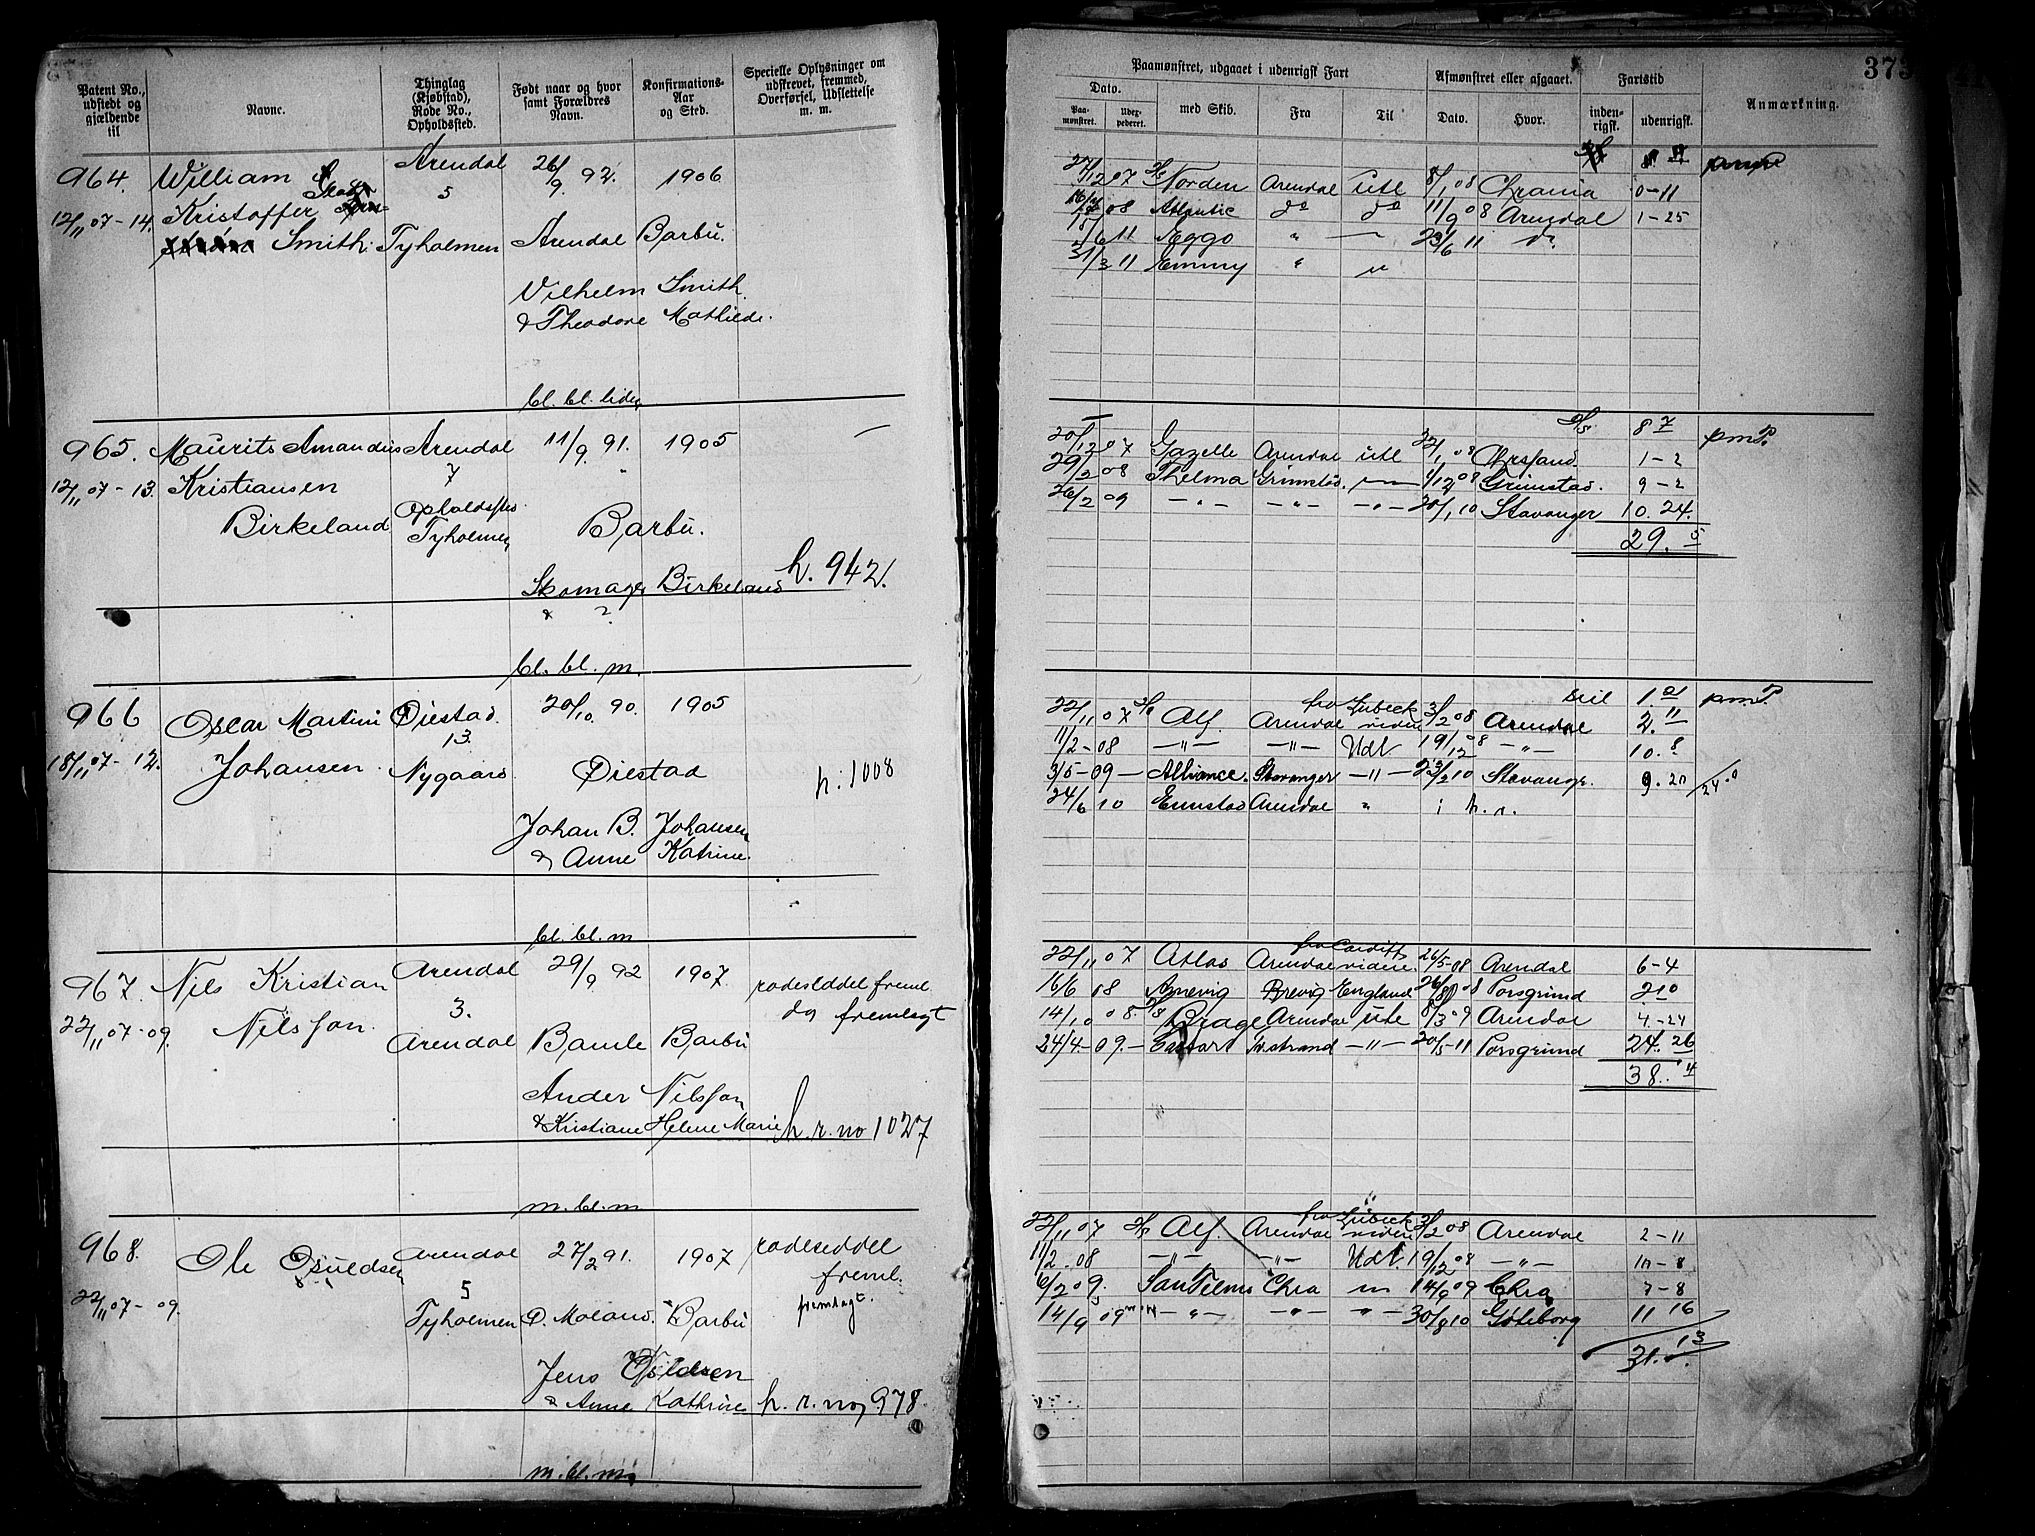 Patent No., udstedt og gjældende til
Navne.
Thinglag (Kjøbstad), Rode No., Opholdssted.
Født naar og hvor samt Forældres Navn.
Konfirmations- Aar og Sted.
Specielle Oplysninger om udskrevet, fremmed, Overførsel, Udslettelse m. m.
964. William Kristoffer Smith.
12/11 07-14.
Arendal
5
Tyholmen
26/9. 92. 1906
Arendal Barbu.
Vilhelm Smith
& Theodore Mathilde.
bl. bl. liden
965. Maurits Amandus Kristiansen Birkeland
12/11 07-13.
Arendal
7
Opholdssted
Tyholmen
11/9. 91. 1905
Barbu.
Skomager Birkeland
& ?
h. 942.
bl. bl. m.
966 Oscar Martini Johansen
18/11 07-12.
Øiestad.
13.
Nygaard
20/10. 90. 1905
Øiestad
h. 1008
Johan B. Johansen
& Anne Katrine.
bl. bl. m
967. Nils Kristian Nilsson
22/11 07-09.
Arendal
3.
Arendal
29/9 92 1907.
Bamle Barbu
rodeseddel freml.
do fremlagt
Ander Nilsson
& Kristiane Helene Marie
h. r. no 1027
m. bl. m
968. Ole Osuldsen
22/11 07-09.
Arendal
5
Tyholmen
27/2 91. 1907
Ø. Moland. Barbu
rodeseddel
freml.
fremlagt.
Jens Osuldsen
& Anne Kathrine
h. r. no, 978.
m. bl. m
373
Paamønstret, udgaaet i udenrigsk Fart
Afmønstret eller afgaaet.
Fartstid
Anmærkning.
Dato.
Paa- mønstret.
Udex- pederet.
med Skib.
Fra
Til
Dato.
Hvor.
inden- rigsk.
udenrigsk.
27/12 07 Norden Arendal utl 8/1 08 Chrania 0-11
08 Atlantic do do 11/9 08 Arendal 1-25
15/6 11 Eggo " — 23/6 11 do
31/3 11 Emmy " "
8 7 pm P.
20/12 07 Gazelle Arendal utl 22/1 08 Chrsand. 1-2
29/2 08 Thelma Grimstad. — 1/12 08 Grimstad. 9-2
26/2 09 -"- -"- -"- 20/1 10 Stavanger 10. 24.
29. 5
seil 1. 21 pm P.
22/11 07 Alf Arendal fra Lübeck videre 3/2 08 Arendal 2. 11
11/2-08 -"- -"- Udl 19/12 08 -"- 10. 8
3/5-09- Alliance. Stavanger -"- 23/2 10 Stavanger. 9. 20
24/6 10 Arendal " i h. r.
22/11 07 Atlas Arendal fra Cardiff videre 26/5-08 Arendal 6-4
16/6 08 Agnevig Brevig England 26/8 08 Porsgrund 2 10
14/10 08 Brage Arendal utl 8/3 09 Arendal 4-24
24/4-09.- -"- 20/5-11 Porsgrund 24. 26
38. 4
22/11 07 Alf. Arendal fra Lübeck videre 3/2 08 Arendal 2-11
11/2. 08 -"- -"- Udl. 19/12 08 -"- 10-8
6/2 09. Chra 14/9 09 Chra 7-8
14/9 09 -"- -"- -"- 30/8 10 Göteborg 11 16
31. 13